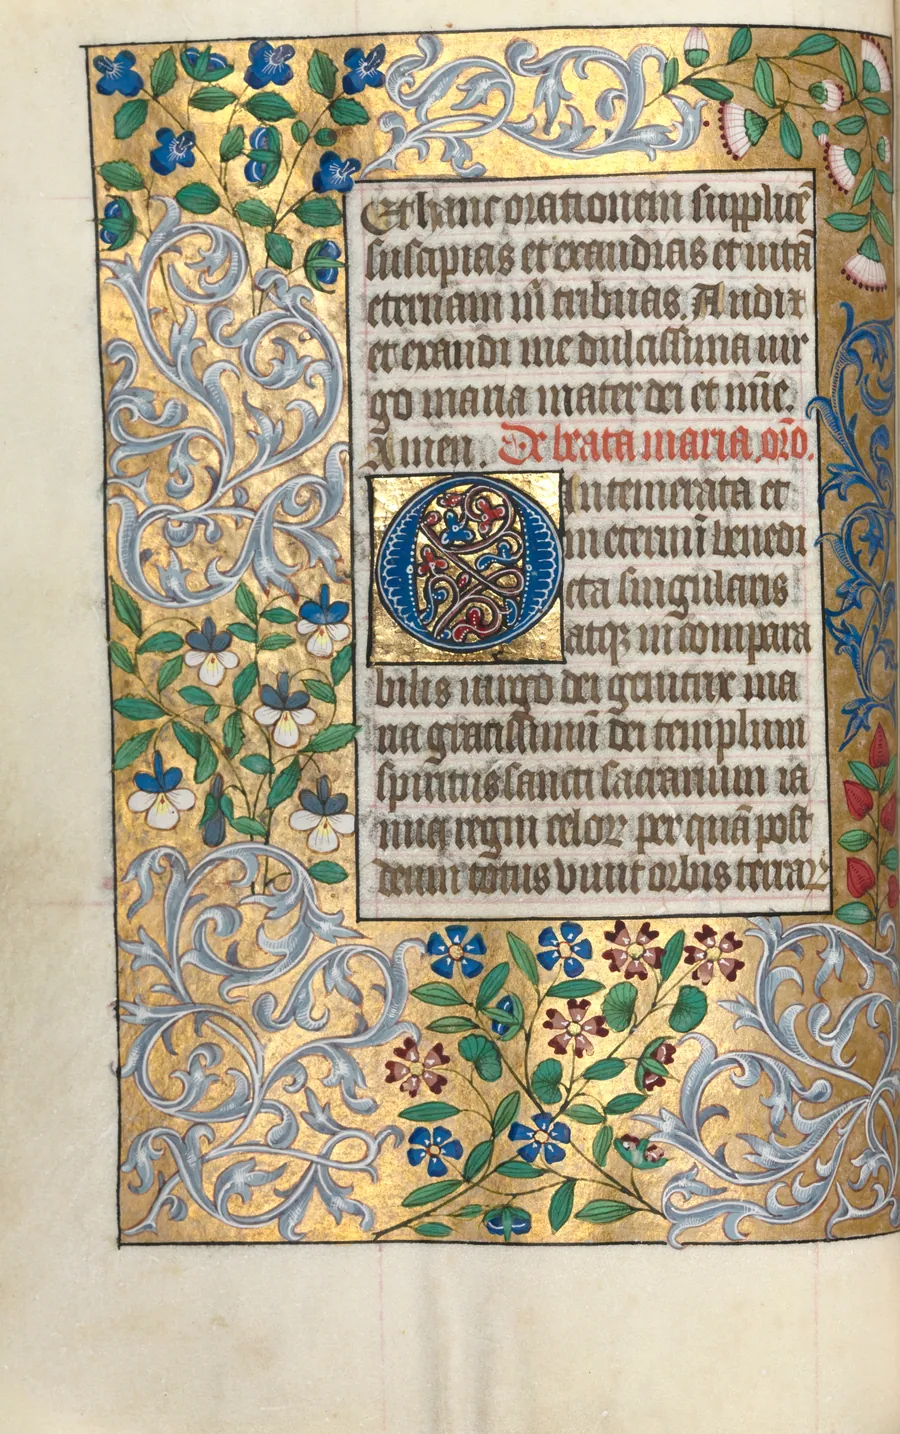 Et hanc orationem supplicē
suscipias et exaudias et uitā
eternam m̄ tribuas. Audi
et exaudi me dulcissima uir
go maria mater dei et mīe.
Amen. De beata maria. orō.
O intemerata et
in eternū benedi
cta singularis
atqꝫ incompara
bilis uirgo dei genitrix ma
ria gratissimū dei templum
spiritus sancti sacrarium ia
nua regni celoꝝ per quā post
deum totus uiuit orbis terraꝝ